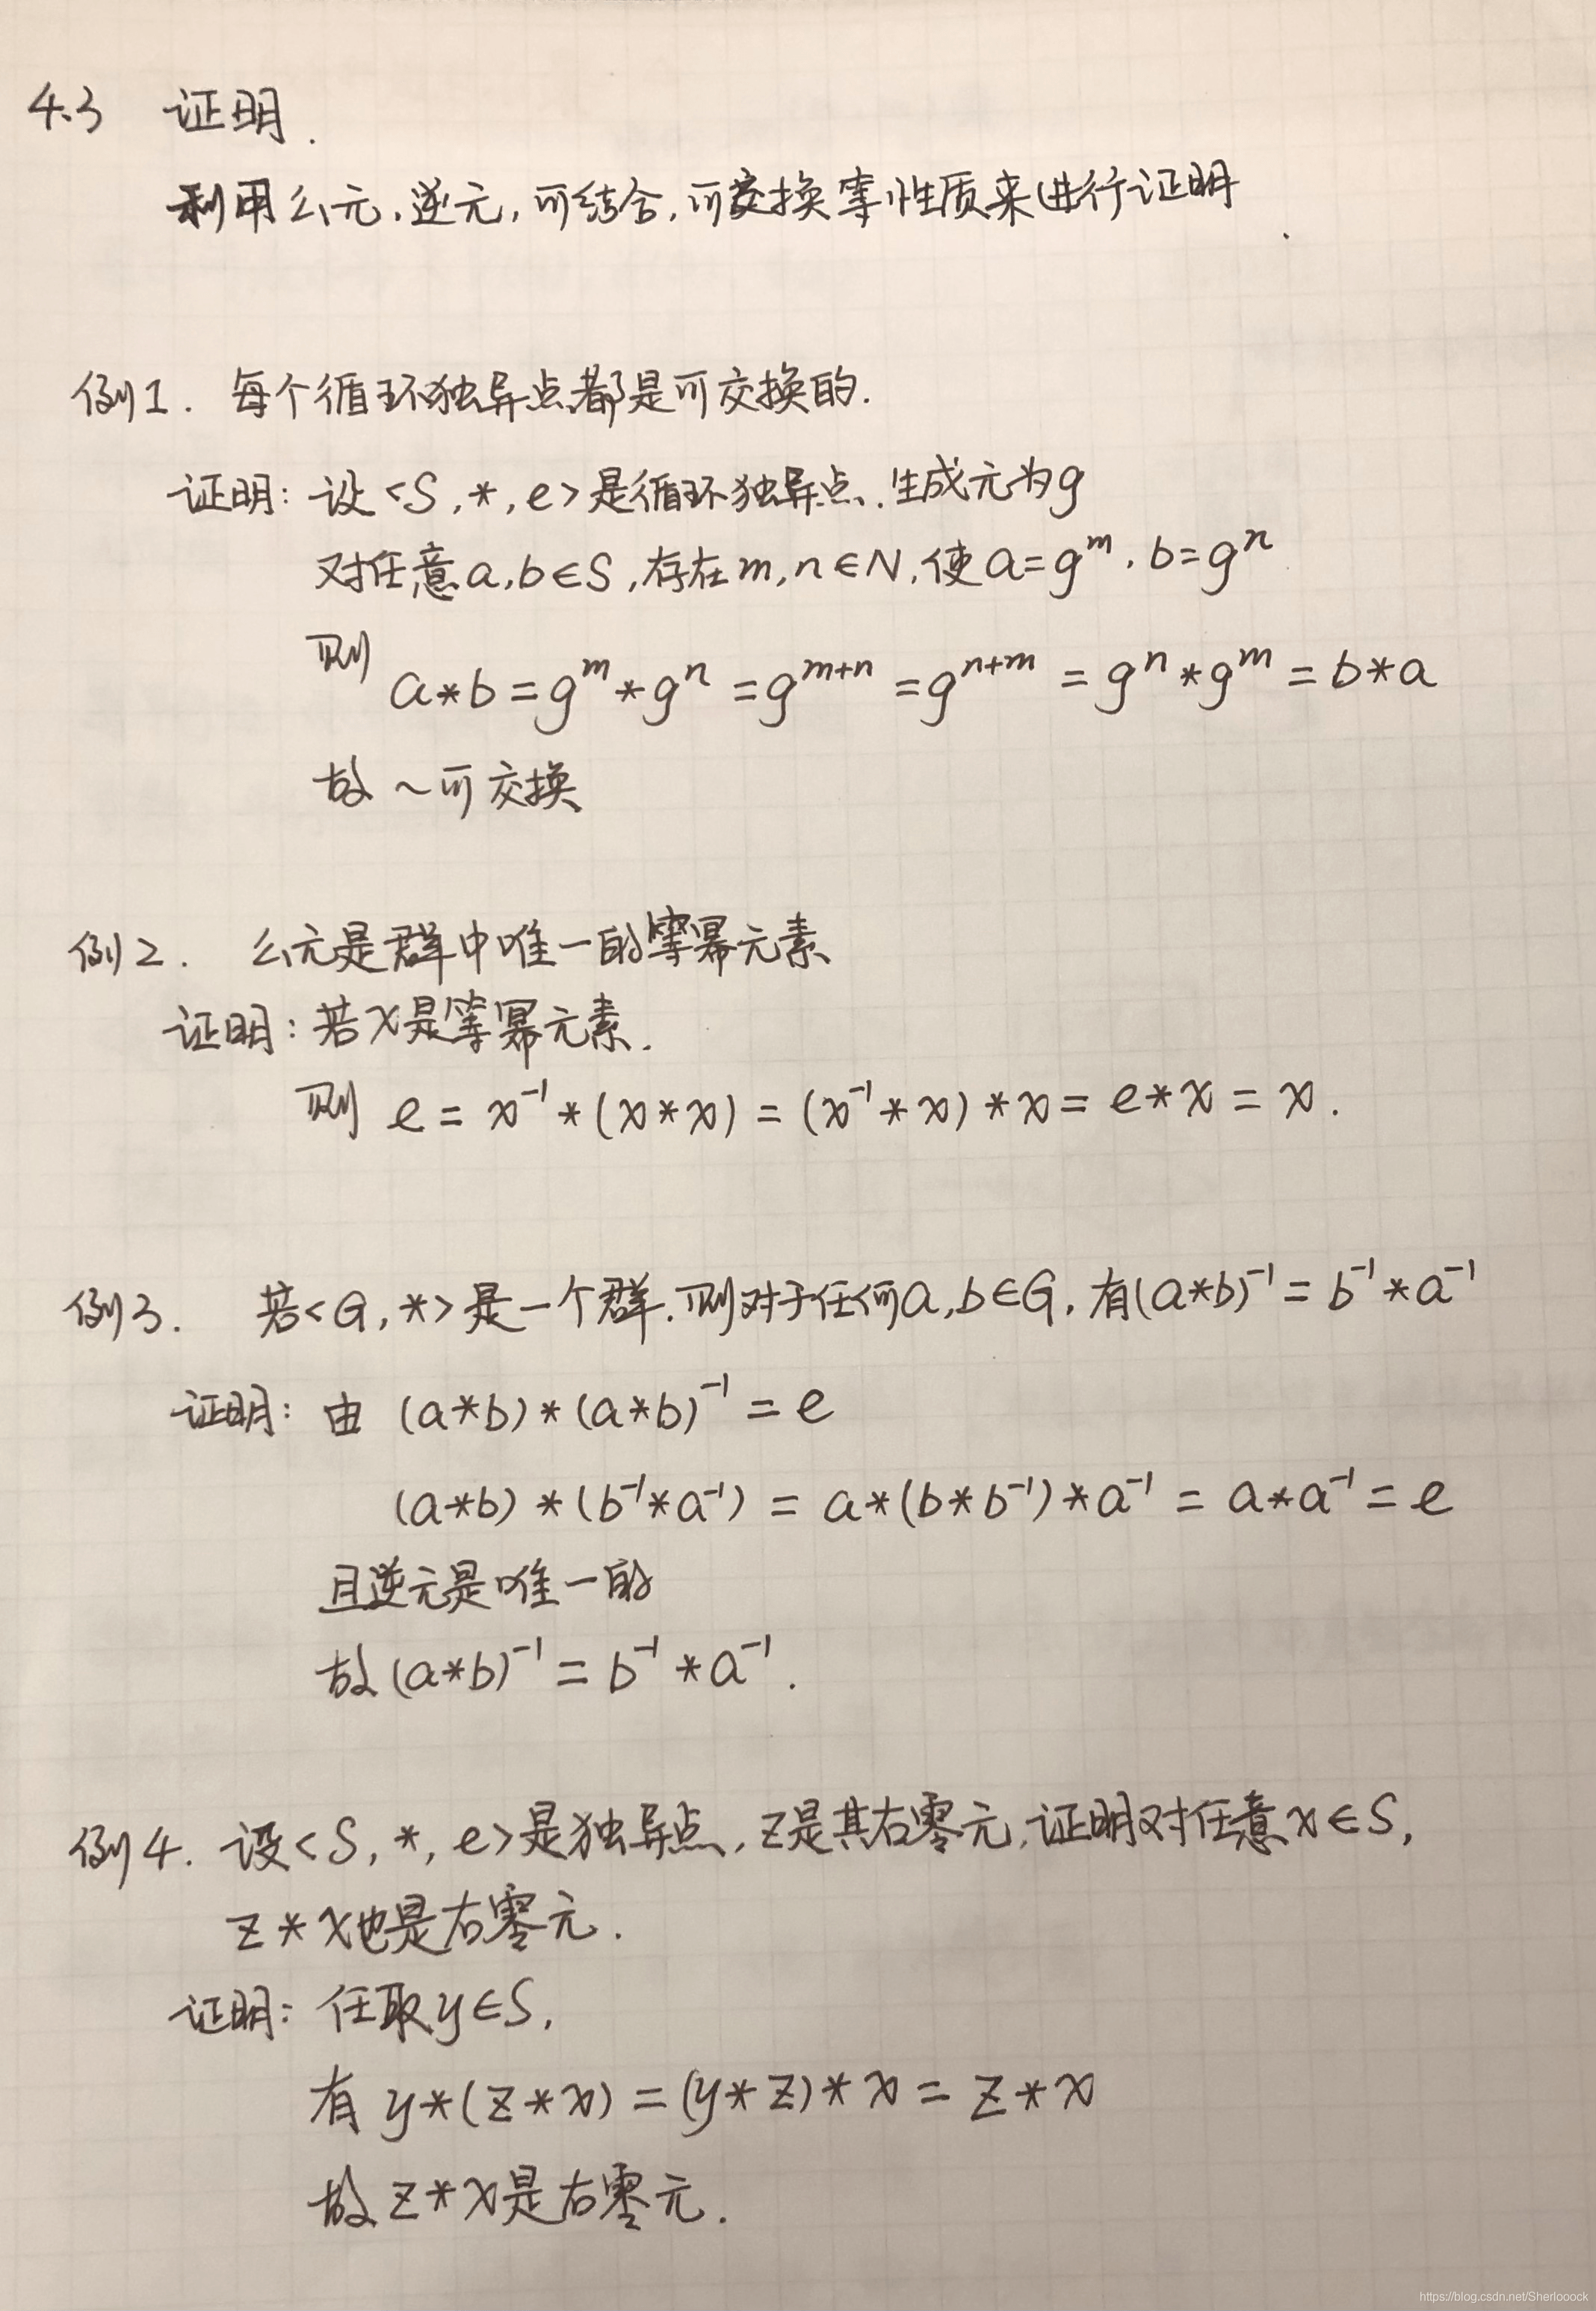 4.3 证明.
利用幺元,逆元,可结合,可交换等性质来进行证明.
例1. 每个循环独异点都是可交换的.
证明: 设<S,*,e>是循环独异点,生成元为g
对任意a,b∈S,存在m,n∈N,使a=g^m,b=g^n
则 a*b=g^m*g^n=g^{m+n}=g^{n+m}=g^n*g^m=b*a
故~可交换
例2. 幺元是群中唯一的等幂元素
证明:若x是等幂元素.
则 e=x⁻¹*(x*x)=(x⁻¹*x)*x=e*x=x.
例3. 若<G,*>是一个群,则对于任何a,b∈G,有(a*b)⁻¹=b⁻¹*a⁻¹
证明: 由 (a*b)*(a*b)⁻¹=e
(a*b)*(b⁻¹*a⁻¹)=a*(b*b⁻¹)*a⁻¹=a*a⁻¹=e
且逆元是唯一的
故(a*b)⁻¹=b⁻¹*a⁻¹.
例4. 设<S,*,e>是独异点,z是其右零元,证明对任意x∈S,
z*x也是右零元.
证明: 任取y∈S,
有 y*(z*x)=(y*z)*x=z*x
故z*x是右零元.
https://blog.csdn.net/Sherlooock